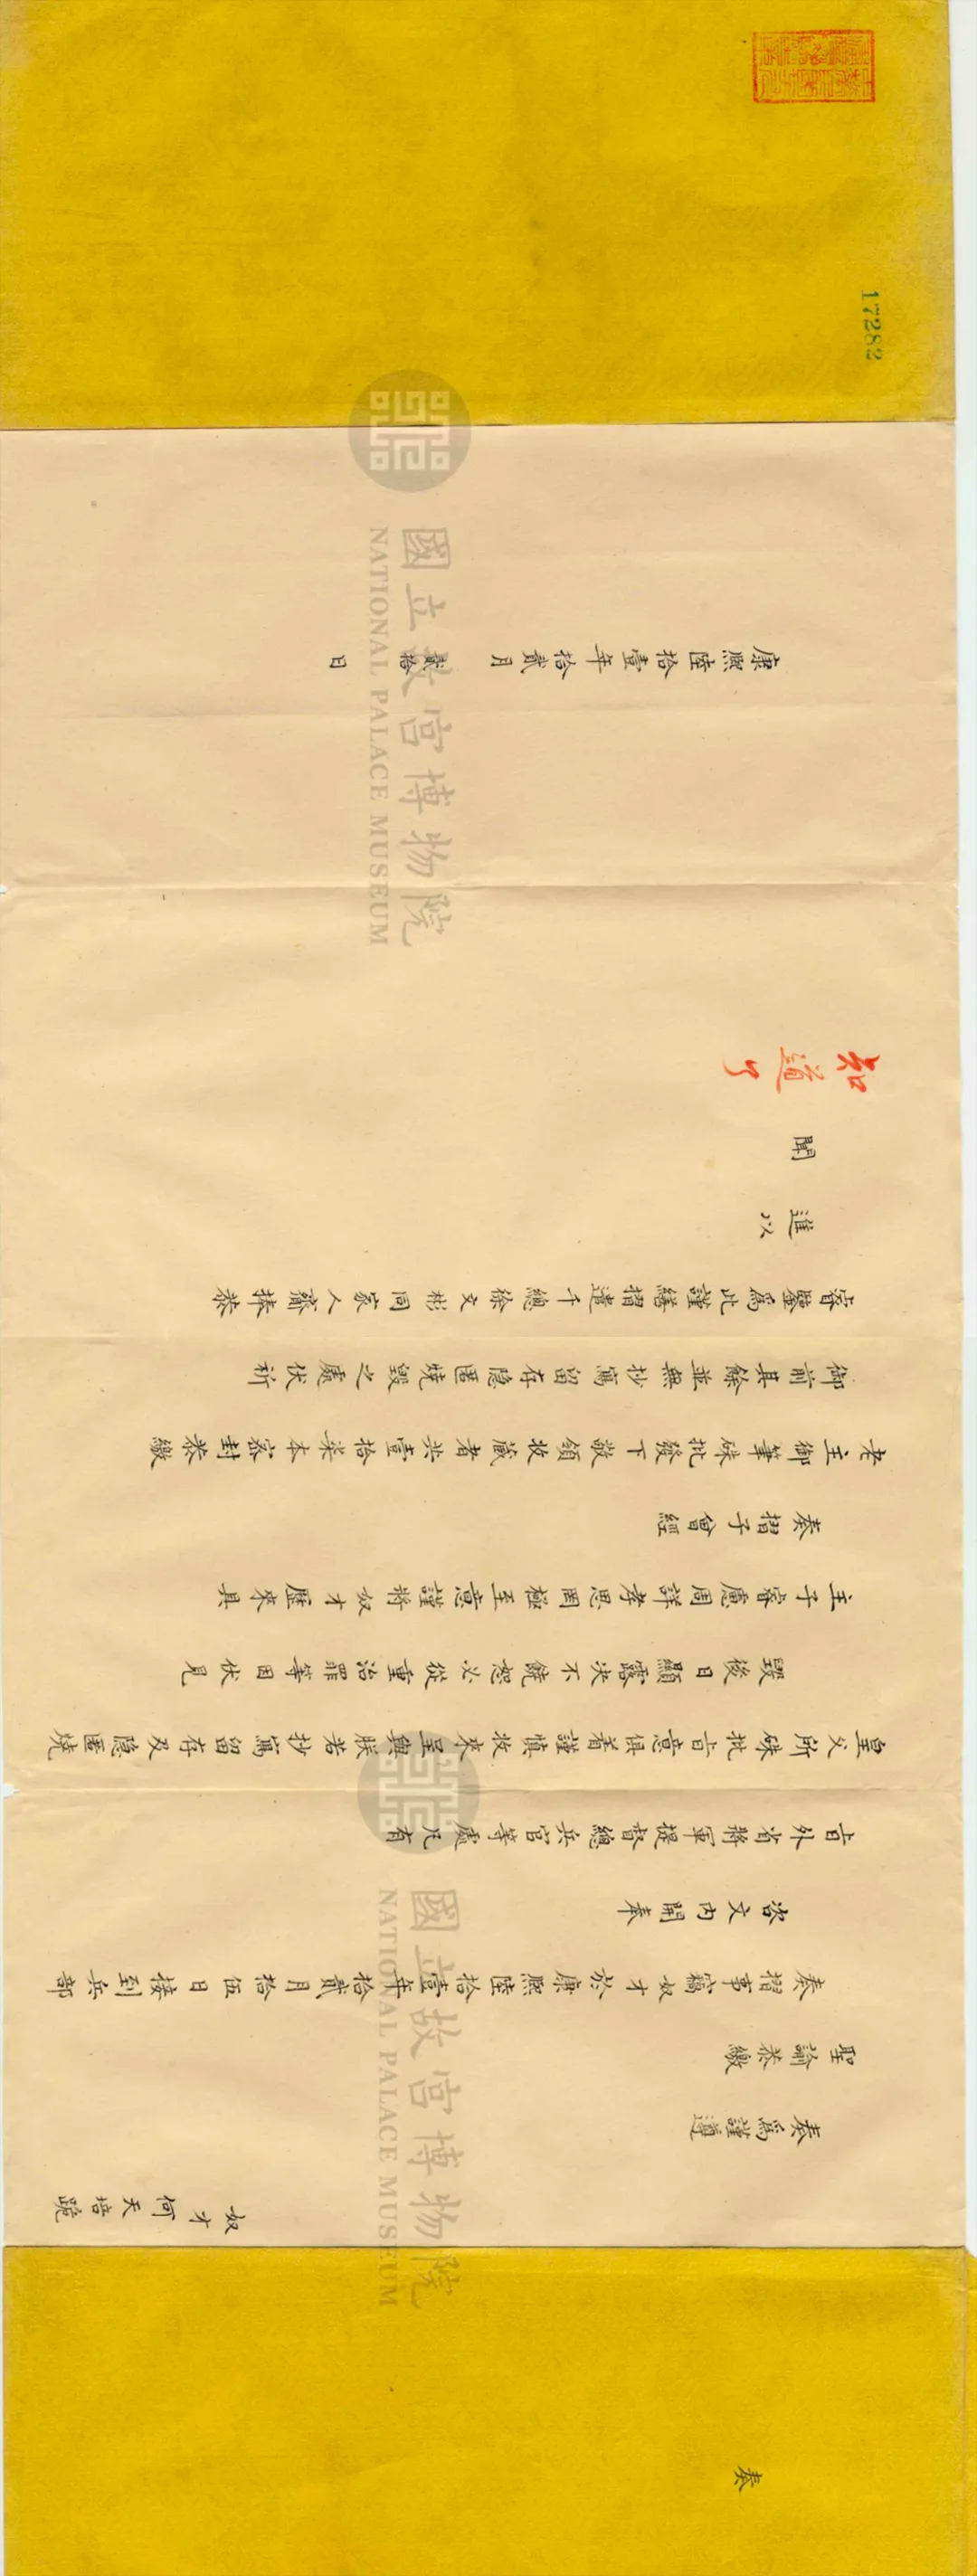 奏
奴才何天培跪
奏為謹遵
聖諭恭繳
奏摺事竊奴才於康熙陸拾壹年拾貳月拾伍日接到兵部
咨文內開奉
旨外省將軍提督總兵官等處凡有
皇父所硃批旨意俱着謹慎收來呈與朕若抄寫留存及隱匿燒
毀後日顯露決不饒恕必從重治罪等因伏見
主子睿慮周詳孝思罔極至意謹將奴才歷來具
奏摺子曾經
老主御筆硃批發下敬領收藏者共壹拾柒本密封恭繳
御前其餘並無抄寫留存隱匿燒毀之處伏祈
睿鑒為此謹繕摺遣千總徐文彬同家人齎捧恭
進以
聞
知道了
康熙陸拾壹年拾貳月 貳拾 日
17282
國立故宮博物院
NATIONAL PALACE MUSEUM
國立故宮博物院
NATIONAL PALACE MUSEUM